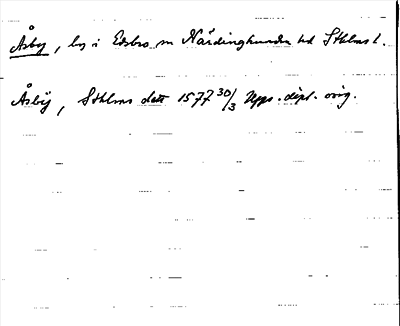 Åsby, by i Edsbro sn Närdinghundra hd Sthlms l.
Åsbÿ, Sthlms datt 1577 30/3 Upps. dipl. orig.